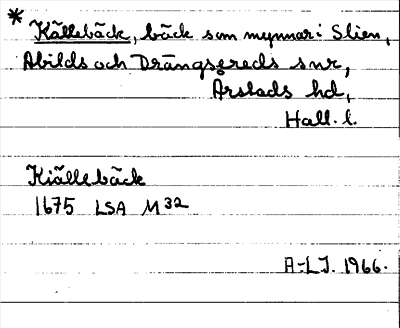 * Källebäck, bäck som mynnar i Slien,
Abilds och Drängsereds snr,
Årstads hd,
Hall. l.
Kiällebäck
1675 LSA M32
A-LJ. 1966.